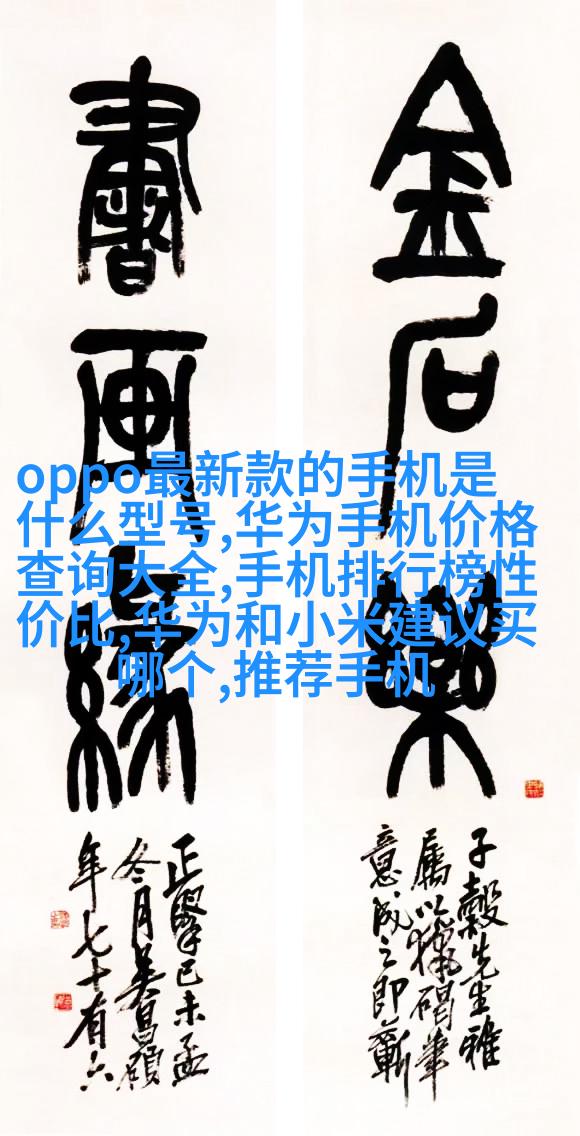 金石樂
書画緣
子穀先生雅
屬以獵碣筆
意成之即蘄
正學己未孟
冬月吴昌碩
年七十有六
oppo最新款的手机是
什么型号,华为手机价格
查询大全,手机排行榜性
价比,华为和小米建议买
哪个,推荐手机